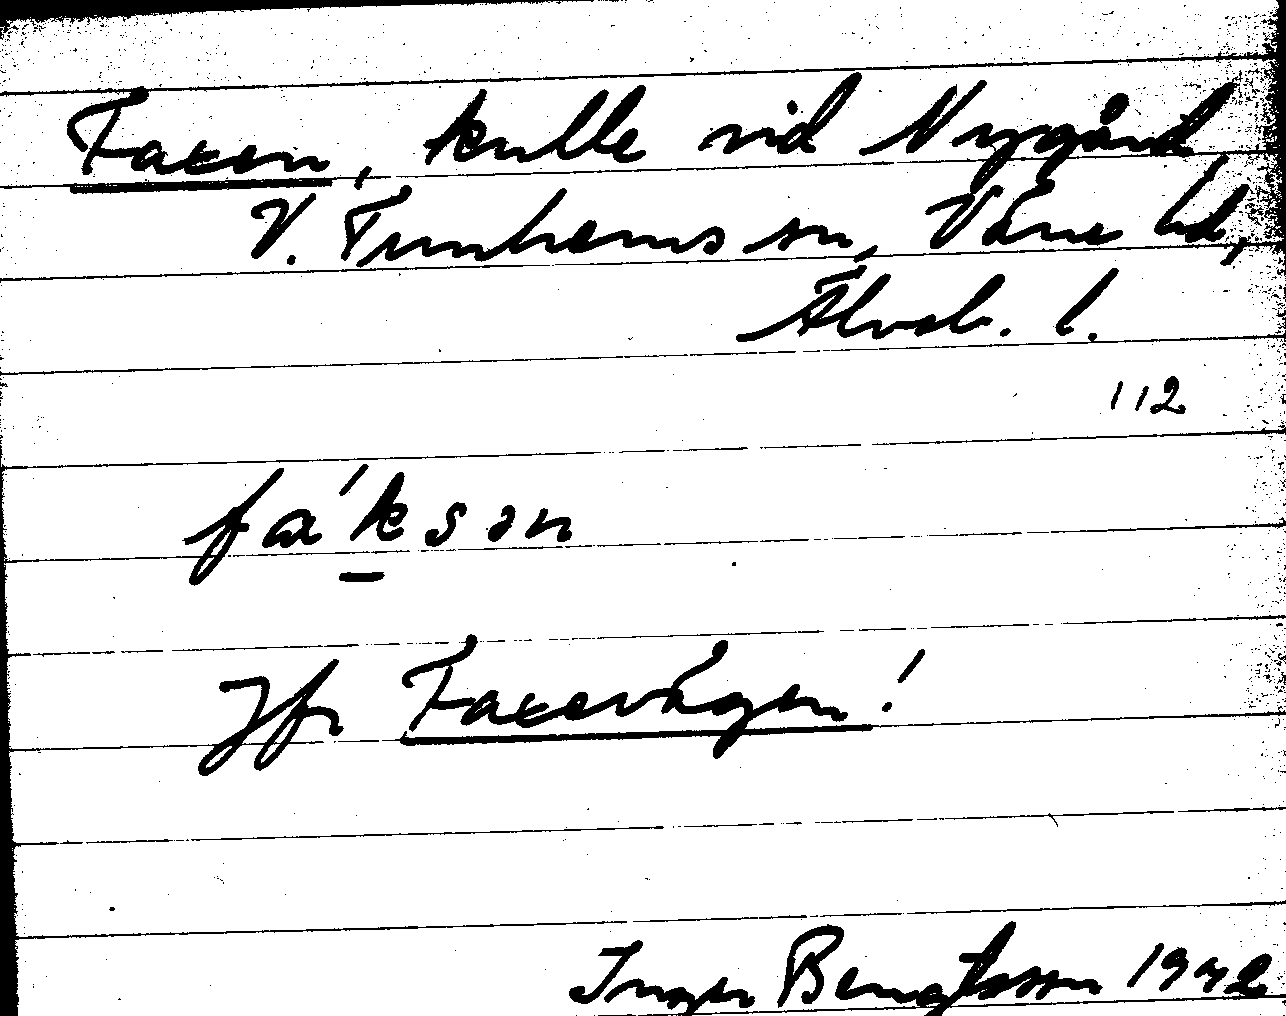 Faxen, kulle vid Nygård,
V. Tunhems sn, Väne hd,
Älvsb. l.
112
fa'ksən
Jfr Faxevågen!
Inger Bengtsson 1942